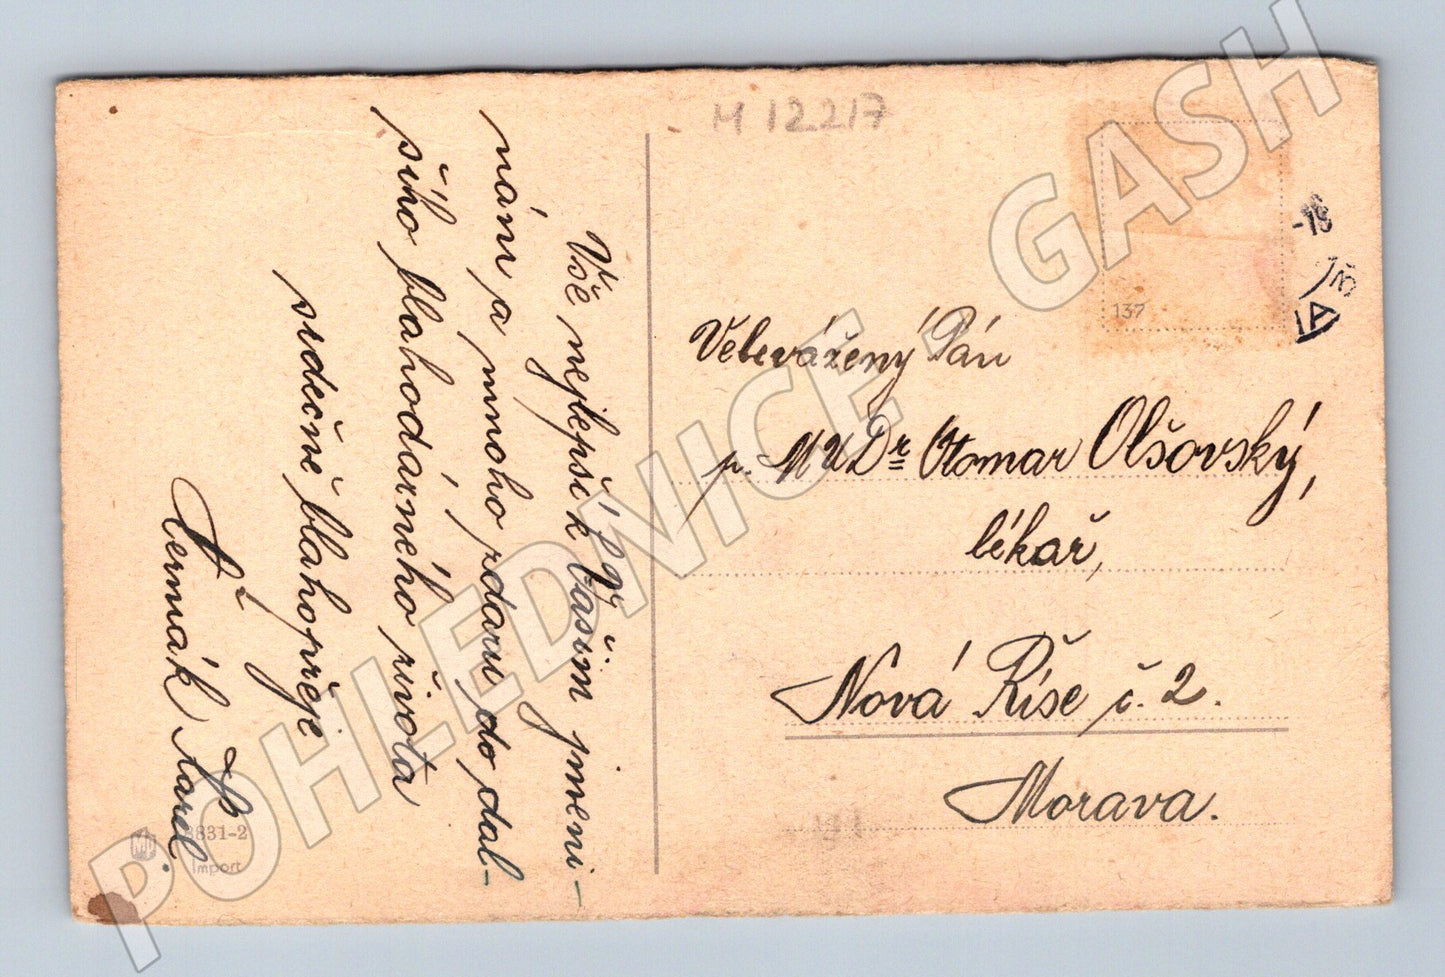 M 12217
137
-18
IA
Velevážený Pán
p. MUDr Otomar Olšovský,
lékař,
Nová Říše č. 2.
Morava.
Vše nejlepší k Vašim jmeni-
nám a mnoho zdaru do dal-
šího blahodárného života
srdečně blahopřeje
Čermák Karel.
3831-2
Import
POHLEDNICE - GASH